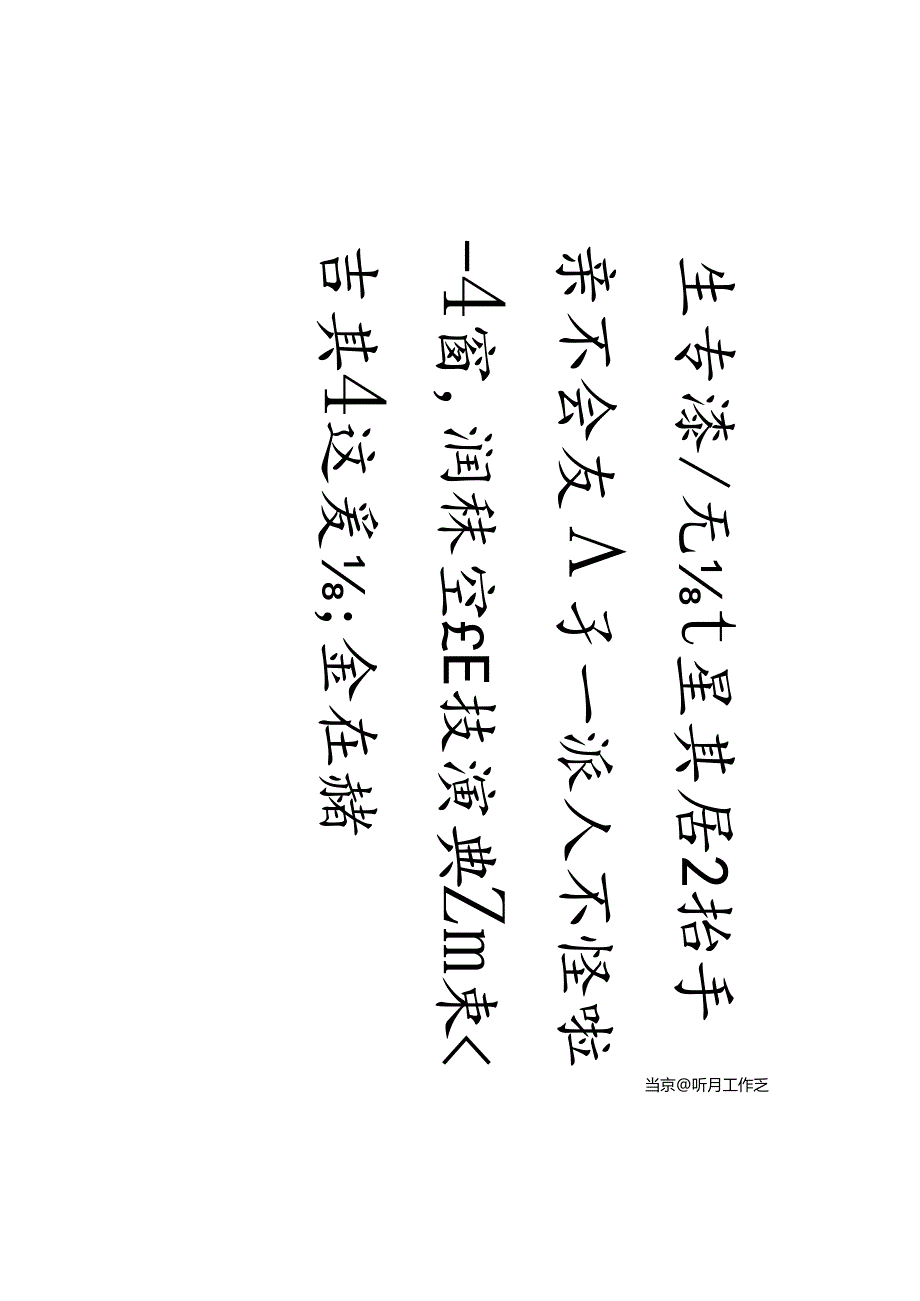 生专漆/无⅛t星其居2抬手
亲不会友Λ孑一派人不怪啦
-4窗，润秣空£E技演典Zm束<
吉其4这爰⅛;金在赭
当京@听月工作乏